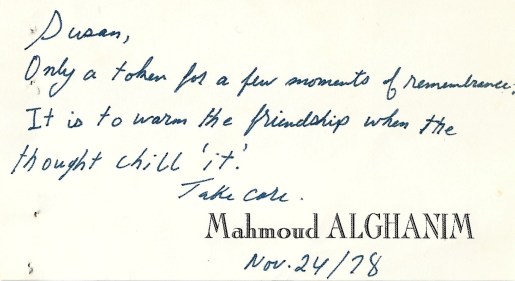 Susan,
Only a token for a few moments of remembrance.
It is to warm the friendship when the
thought chill 'it'.
Take care.
Mahmoud ALGHANIM
Nov. 24/78